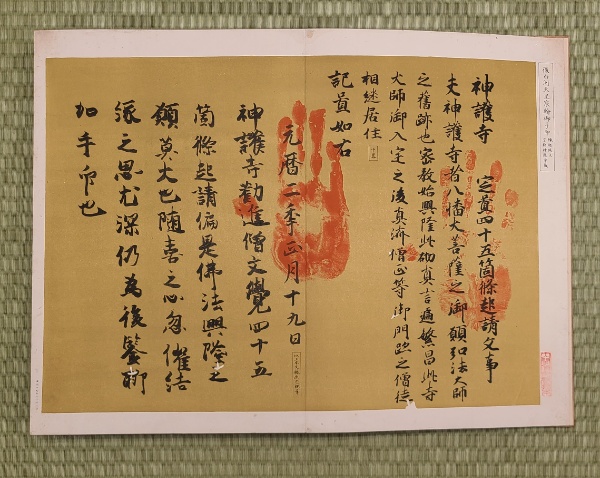 神護寺
定置四十五箇條起請文事
夫神護寺者八幡大菩薩之御願弘法大師
之舊跡也家教始興隆此砌真言遍繁昌此寺
大師御入定之後真濟僧正等御門跡之僧徒
相継居住
記置如右
元暦二季正月十九日
神護寺勸進僧文覺四十五
箇條起請偏是佛法興隆之
願莫大也随喜之心忽催結
縁之思尤深仍為後鑒聊
加手印也